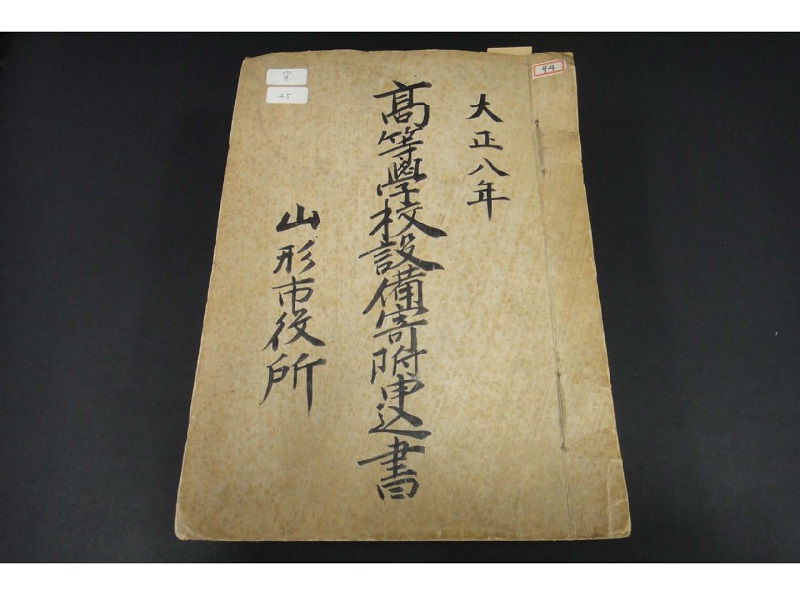 大正八年
高等學校設備寄附申込書
山形市役所
94
45